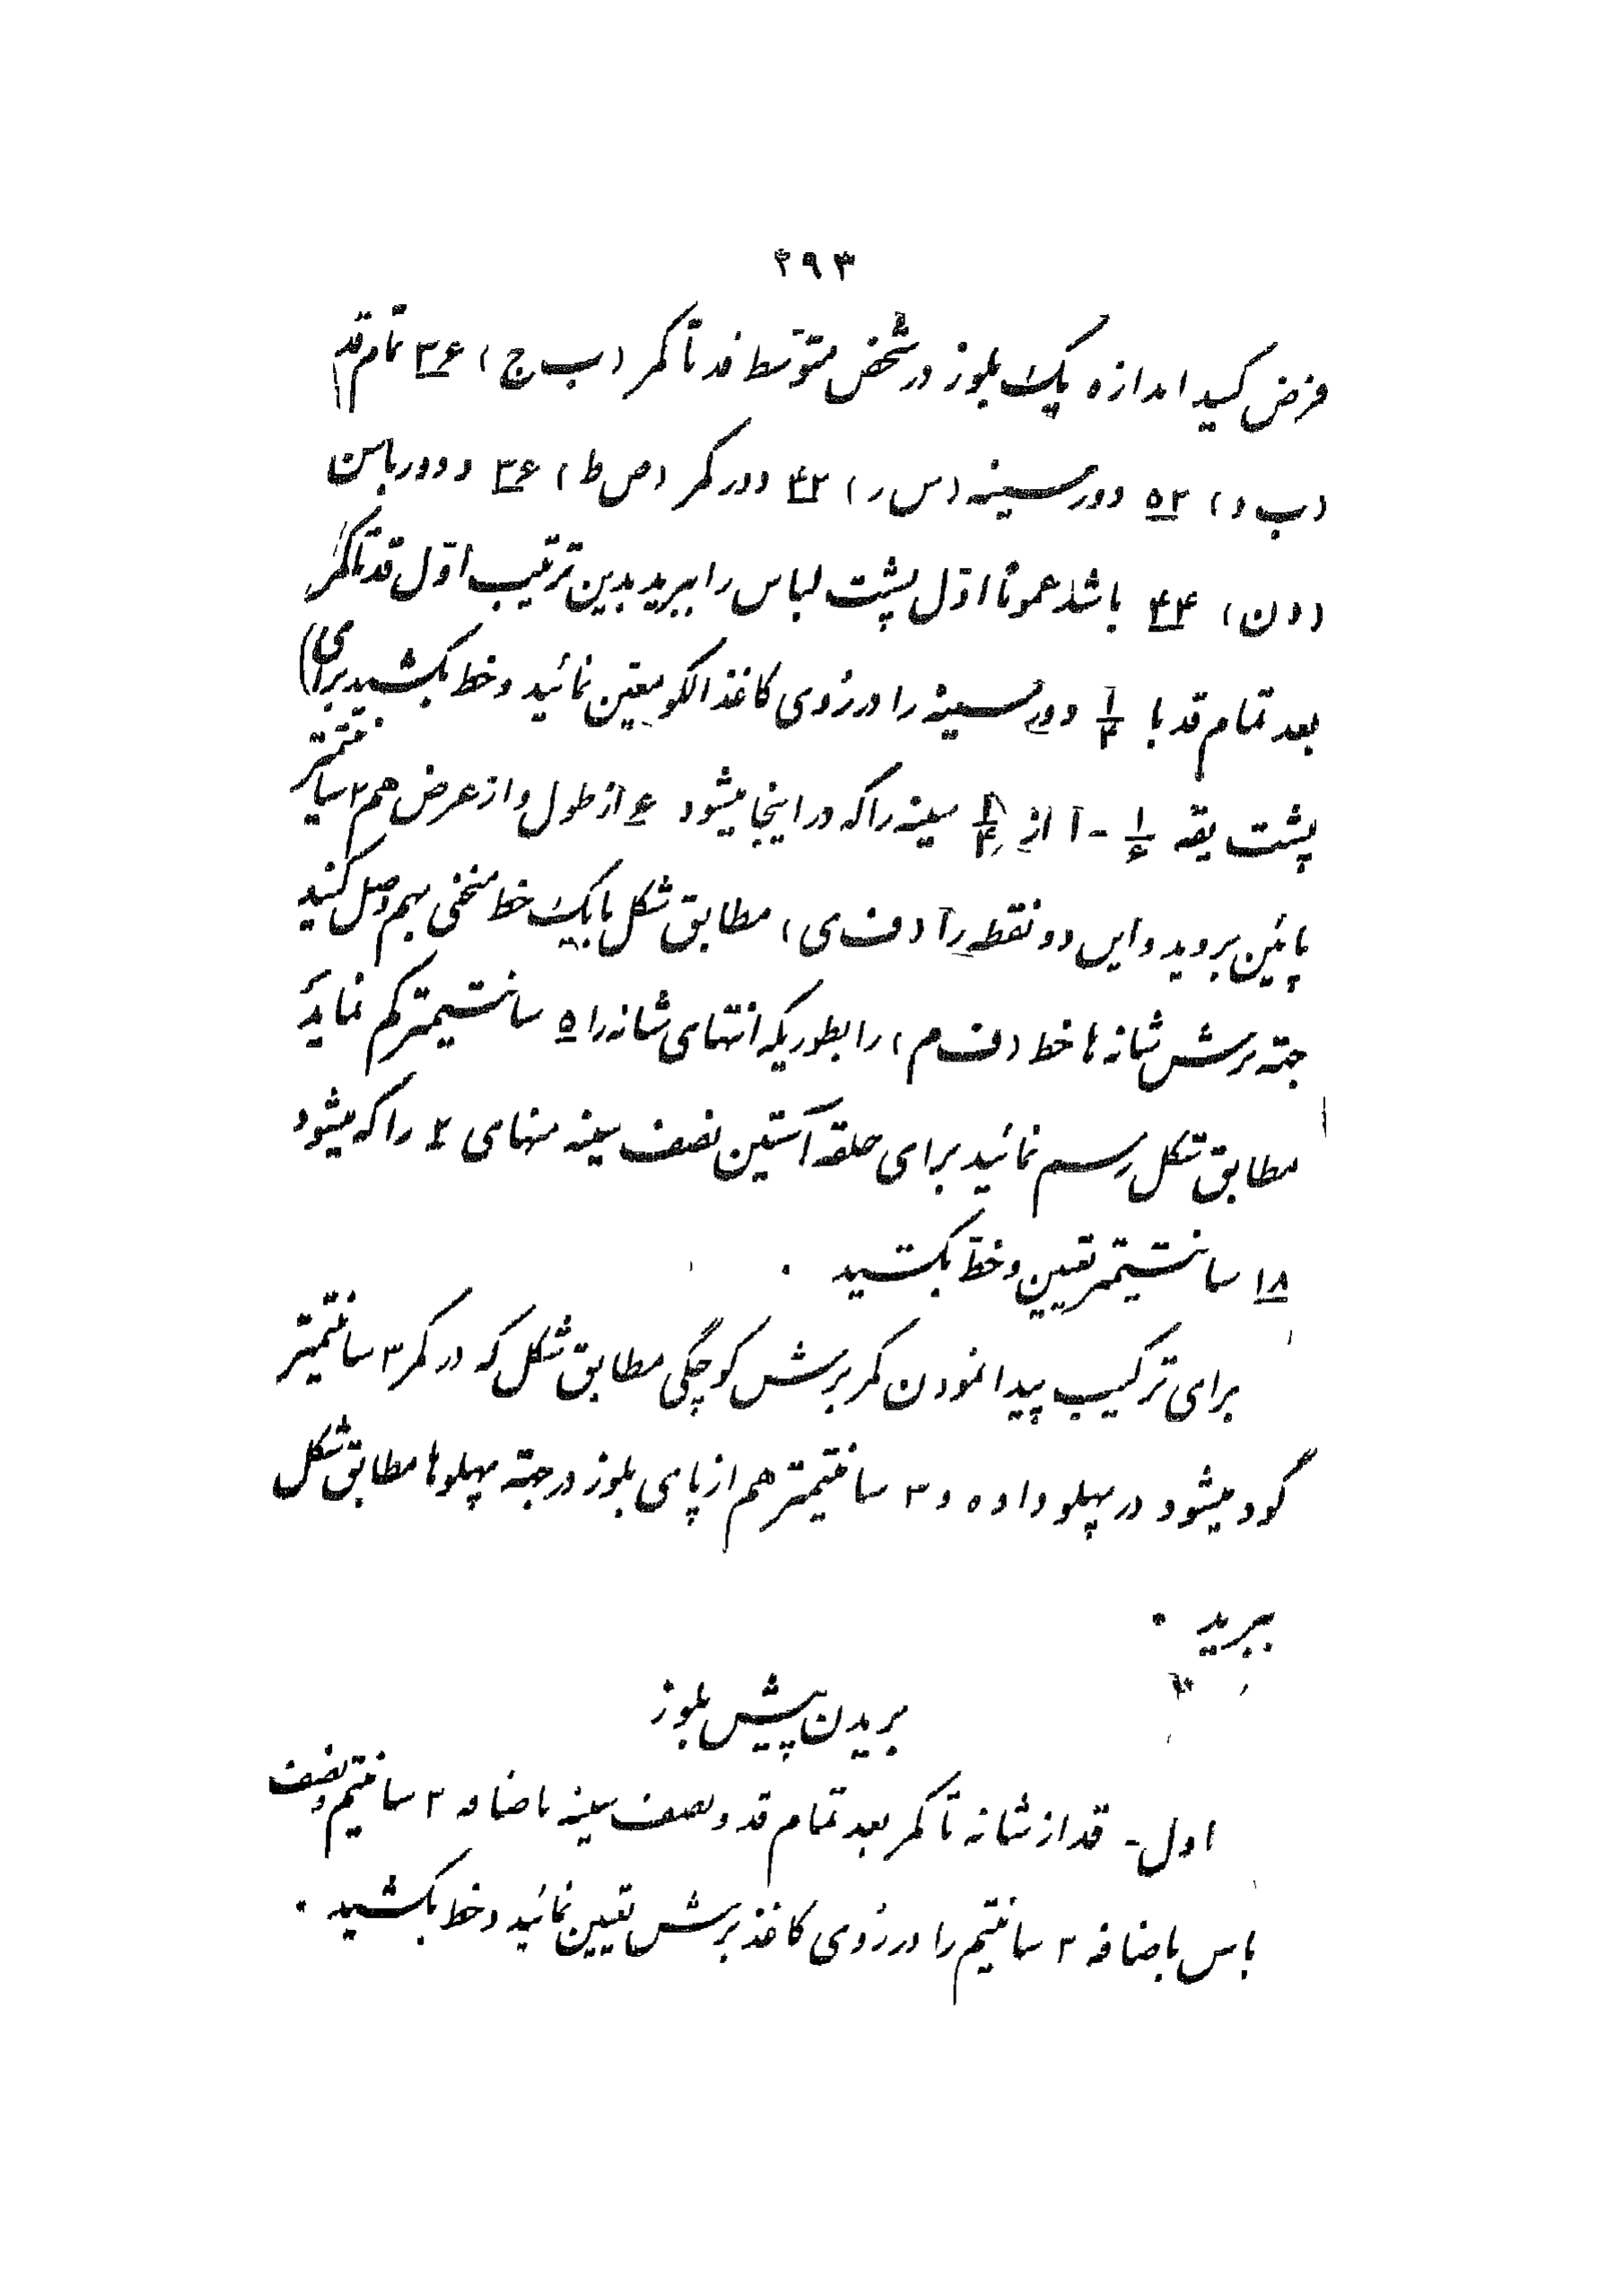 ۲۹۳
فرض کنید اندازه یک بلوز در شخص متوسط قد تا کمر (ب ج) ۳۶ تمام قد
(ب د) ۵۲ دور سینه (س ر) ۴۲ دور کمر (ص ط) ۳۶ و دور باسن
(د ن) ۴۴ باشد عموماً اول پشت لباس را ببرید بدین ترتیب اول قد تا کمر
بعد تمام قد با ۱/۴ دور سینه را در روی کاغذ الگو معین نمائید و خط بکشید برای
پشت یقه ۱/۶ - ۱ از سینه را که در اینجا میشود ۶ از طول و از عرض هم ۲ سانتیمتر
پائین بروید و این دو نقطه را (ف ی) مطابق شکل با یک خط منحنی بهم وصل کنید
جهة برش شانه ها خط (ف م) را بطوریکه انتهای شانه را ۵ سانتیمتر کم نماید
مطابق شکل رسم نمائید برای حلقه آستین نصف سینه منهای ۳ را که میشود
۱۸ سانتیمتر تعیین و خط بکشید .
برای ترکیب پیدا نمودن کمر برش کوچکی مطابق شکل که در کمر ۳ سانتیمتر
گود میشود در پهلو داده و ۳ سانتیمتر هم از پای بلوز در جهة پهلوها مطابق شکل
ببرید .
بریدن پیش بلوز
اول - قد از شانه تا کمر بعد تمام قد و نصف سینه باضافه ۲ سانتیم و نصف
باس باضافه ۲ سانتیم را در روی کاغذ برش تعیین نمائید و خط بکشید .